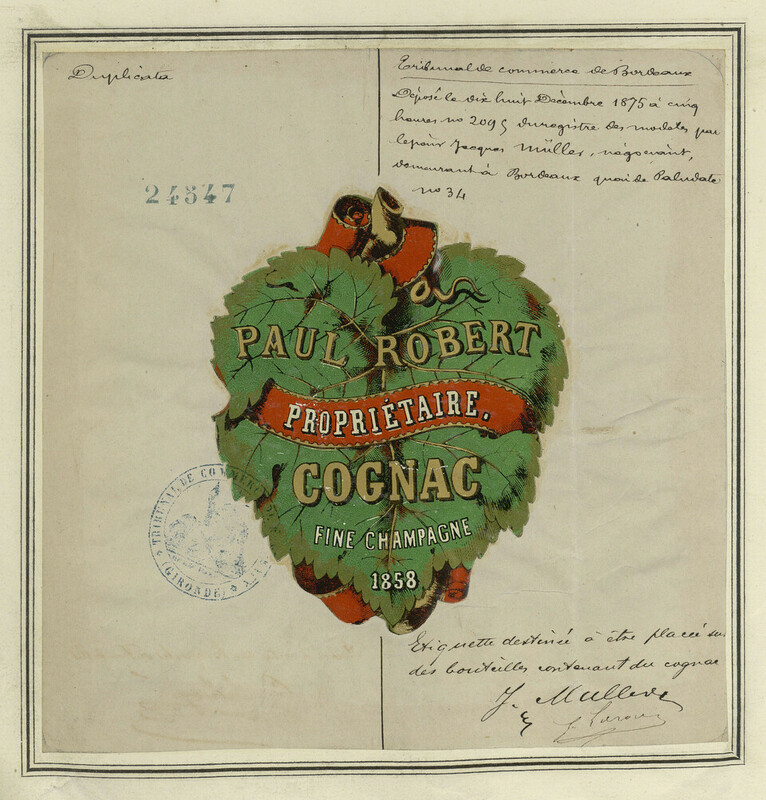 Duplicata
Tribunal de commerce de Bordeaux
Déposé le dix huit Décembre 1875 à cinq
heures no 2095 du registre des modèles par
Jacques Müller, négociant,
demeurant à Bordeaux quai de Paludate
no 34
24547
PAUL ROBERT
PROPRIÉTAIRE.
COGNAC
FINE CHAMPAGNE
1858
TRIBUNAL DE COMMERCE
(GIRONDE)
Etiquette destinée à être placée su
des bouteilles contenant du cognac
J. Muller